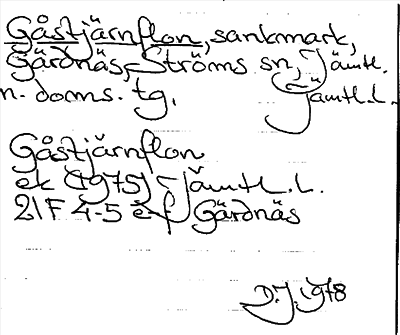 Gåstjärnflon, sankmark,
Gärdnäs, Ströms sn, Jämtl.
n. doms. tg. Jämtl.l.
Gåstjärnflon
ek (1975) Jämtl.l.
21F 4-5 e-f Gärdnäs
D.J. 1978